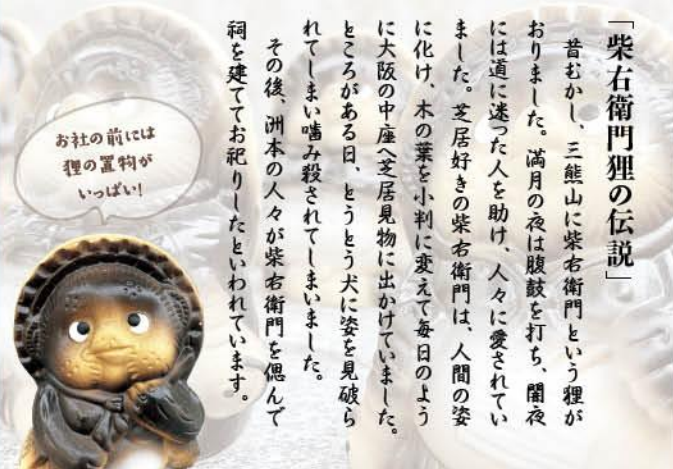 「柴右衛門狸の伝説」
昔むかし、三熊山に柴右衛門という狸が
おりました。満月の夜は腹鼓を打ち、闇夜
には道に迷った人を助け、人々に愛されてい
ました。芝居好きの柴右衛門は、人間の姿
に化け、木の葉を小判に変えて毎日のよう
に大阪の中座へ芝居見物に出かけていました。
ところがある日、とうとう犬に姿を見破ら
れてしまい噛み殺されてしまいました。
その後、洲本の人々が柴右衛門を偲んで
祠を建ててお祀りしたといわれています。
お社の前には
狸の置物が
いっぱい!